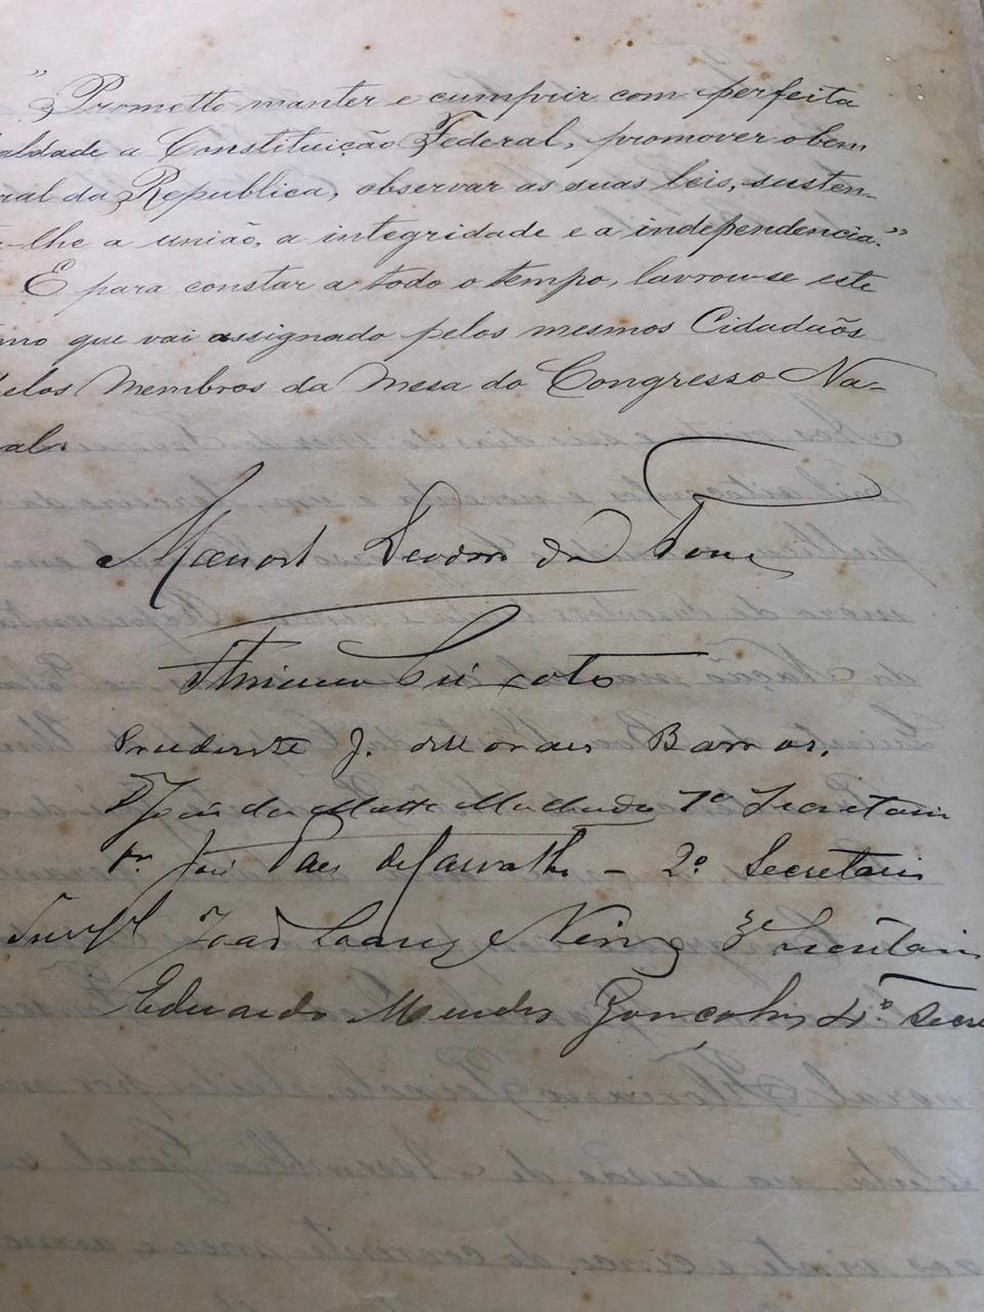 "Prometto manter e cumprir com perfeita
aldade a Constituição Federal, promover o bem
ral da Republica, observar as suas leis, susten-
-lhe a união, a integridade e a independencia."
E para constar a todo o tempo, lavrou-se este
mo que vai assignado pelos mesmos Cidadãos
elos Membros da Mesa do Congresso Na-
al.
Manoel Deodoro da Fons
Floriano Peixoto
Prudente J. de Moraes Barros.
João da Matta Machado 1º Secretario
Dr. José Paes de Carvalho - 2º Secretario
João Soares Neiva 3º Secretario
Eduardo Mendes Gonçalves 4º Secre